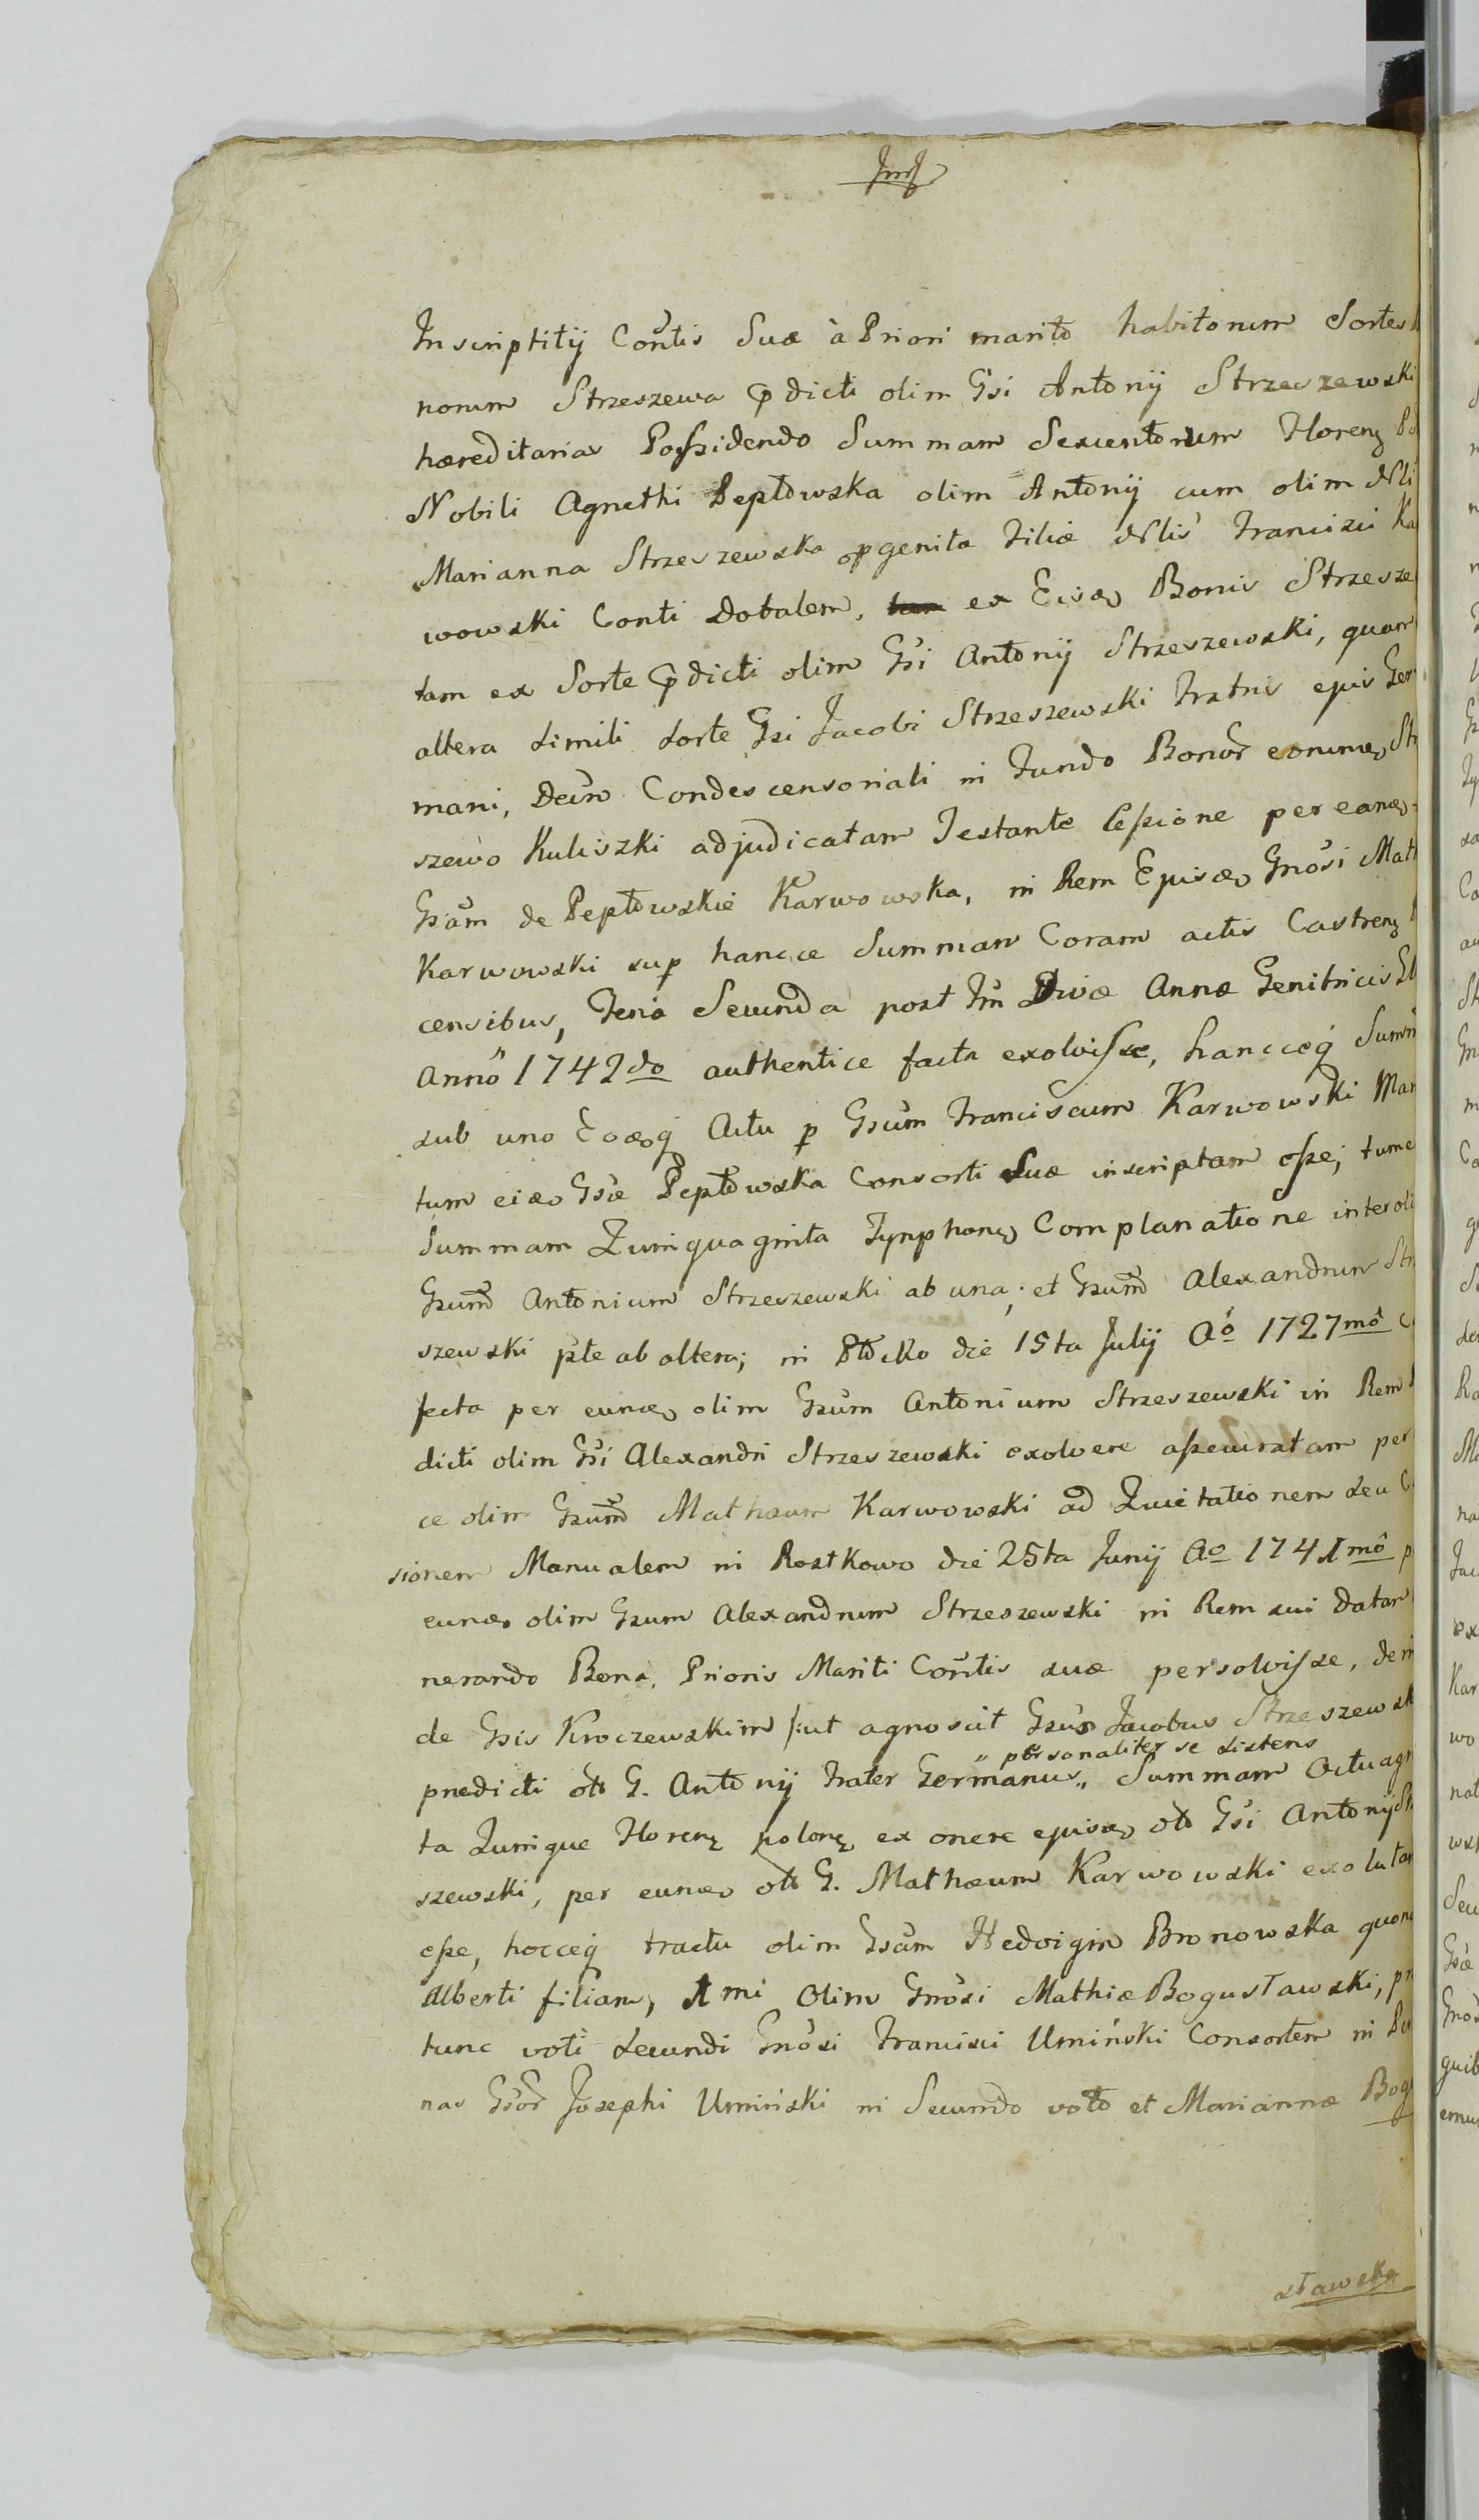 Inscriptitij Cont̃is Suæ à Priori marito habitorum Sortes
norum Strzeszewa p̃dicti olim Gsi Antonij Strzeszewski
hæreditarias Possidendo Summam Sexcentorum Floren
Nobili Agnethi Pepłowska olim Antonij cum olim Nli
Marianna Strzeszewska pgenita Filiæ Nlis Francisci Ka
wowski Conti dotalem, ex Eisdẽ Bonis Strzesze
tam ex Sorte p̃dicti olim Gsi Antonij Strzeszewski, quam
altera simili sorte Gsi Jacobi Strzeszewski Fratris ejus Ger
mani, Decr̃o Condescensoriali in Fundo Bonor̃ eorund̃ Str
szewo Kuliszki adjudicatam Testante Cessione per eand̃
Gsam de Pepłowskie Karwowska, in Rem Ejusd̃ Gnosi Math
Karwowski sup hancce Summam Coram actis Castren
censibus, Feria Secunda post Fm Divæ Annæ Genitricis
Anno 1742do authentice facta exolvisse, hancceq́ Summ
sub uno Eodq́ Actu p Gsum Franciscum Karwowski Mar
tum eid̃ Gsæ Pepłowska Consorti Suæ inscriptam esse; tum e
Summam Quinquaginta Tynphon Complanatione inter oli
Gsum Antonium Strzeszewski ab una; et Gsum Alexandrum Str
szewski pte ab altera; in Płocko die 15ta Julij Ao 1727mo
fecta per eund̃ olim Gsum Antonium Strzeszewski in Rem
dicti olim Gsi Alexandri Strzeszewski exolvere assecuratam per
ce olim Gsum Mathæum Karwowski ad Quietationem seu C
sionem Manualem in Rostkowo die 25ta Junij Ao 1741mo p
eund̃ olim Gsum Alexandrum Strzeszewski in Rem sui datam
nerando Bona Prioris Mariti Cont̃is suæ persolvisse,
de Gsis Kroczewskim ut agnoscit Gsus Jacobus Strzeszewsk
personaliter se sistens
predicti ol G. Antonij Frater Germanus „ Summam Octuagi
ta Quinque Floren polon ex onere ejusd̃ ol Gsi Antonij St
szewski, per eund̃ ol G. Mathæum Karwowski exolutam
esse, hocceq́ tractu olim Gsam Hedvigim Bronowska quon
Alberti filiam, 1mi Olim Gnosi Mathiæ Bogusławski, pr
tunc voti secundi Gnosi Francisci Umiński Consortem in
nas Gsor̃ Josephi Umiński in Secundo voto et Mariannæ Bog
sławska